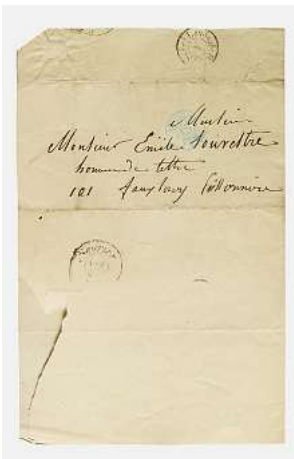 Monsieur
Monsieur Emile Souvestre
homme de lettre
101 faubourg Poissonnière